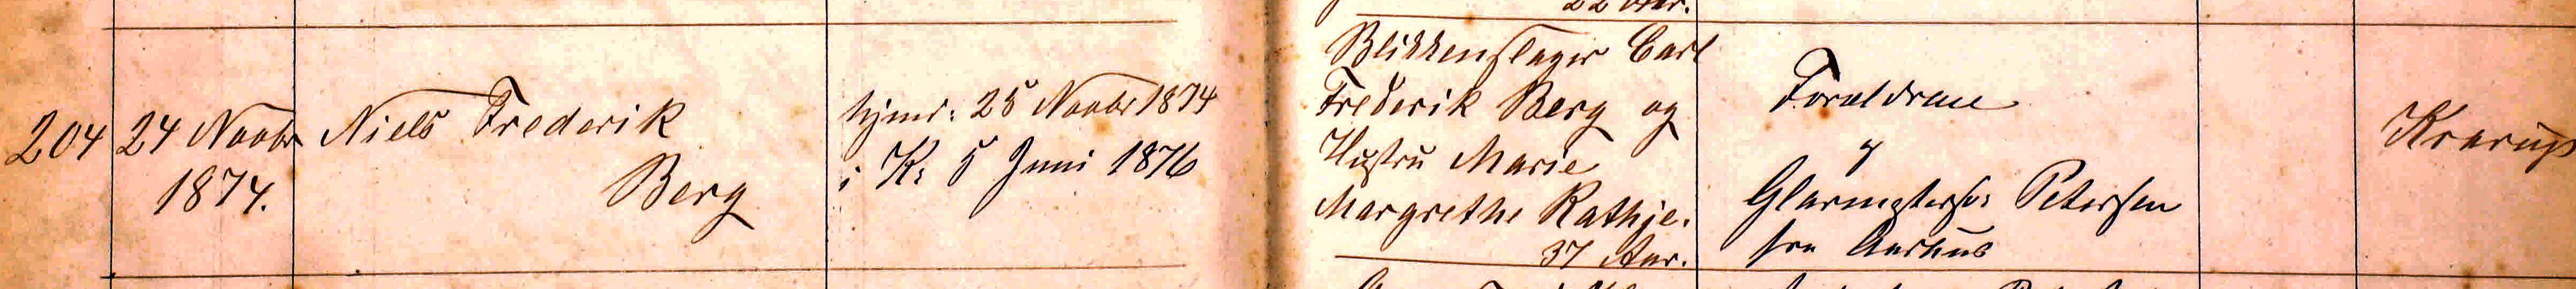 22 Aar.
204
24 Novbr
1874.
Niels Frederik
Berg
hjmd: 25 Novbr 1874
i K: 5 Juni 1876
Blikkenslager Carl
Frederik Berg og
Hustru Marie
Margrethe Rathje.
37 Aar.
Forældrene
og
Glarmesterfr: Petersen
fra Aarhus
Krarup